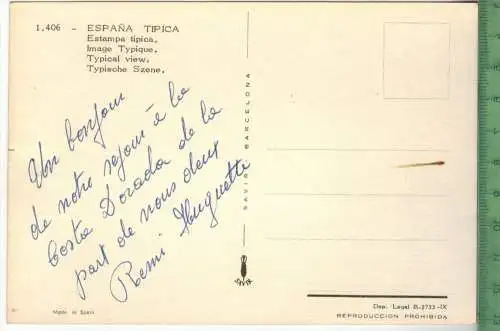 1.406 - ESPAÑA TIPICA
Estampa tipica.
Image Typique.
Typical view.
Typische Szene.
Un bonjour
de notre sejour à la
Costa Dorada de la
part de nous deux
Remi Huguette
SAVIR BARCELONA
SAVIR
Made in Spain
Dep. Legal B-2733-IX
REPRODUCCION PROHIBIDA